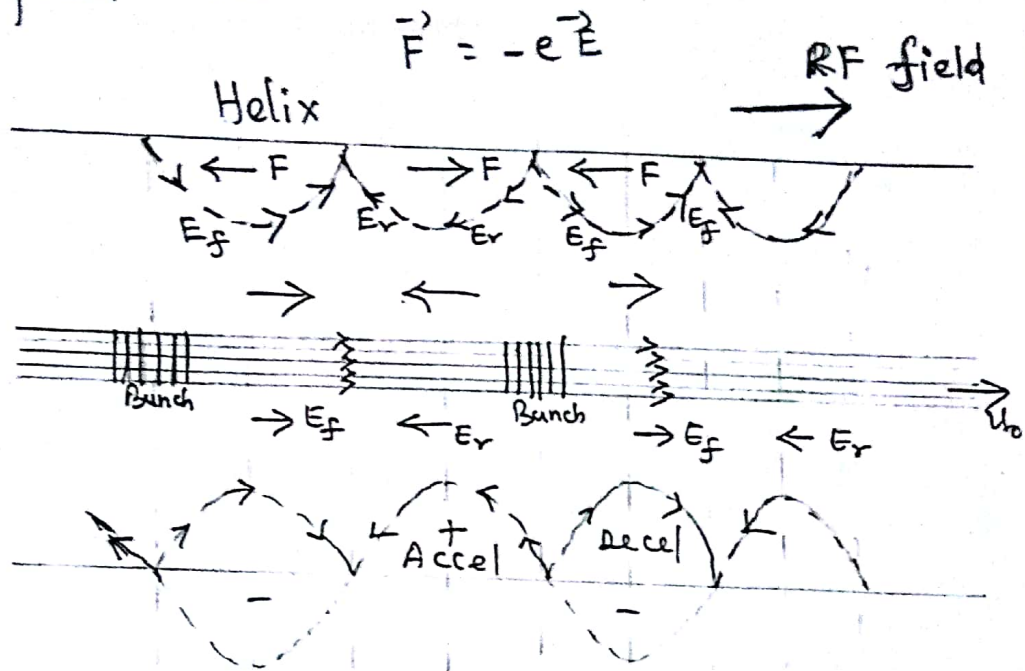 F = -eE
RF field
Helix
← F → F ← F
Ef Er Er Ef Ef
→ ← →
Bunch Bunch
→ Ef ← Er → Ef ← Er
U₀
+
Accel Decel
- -